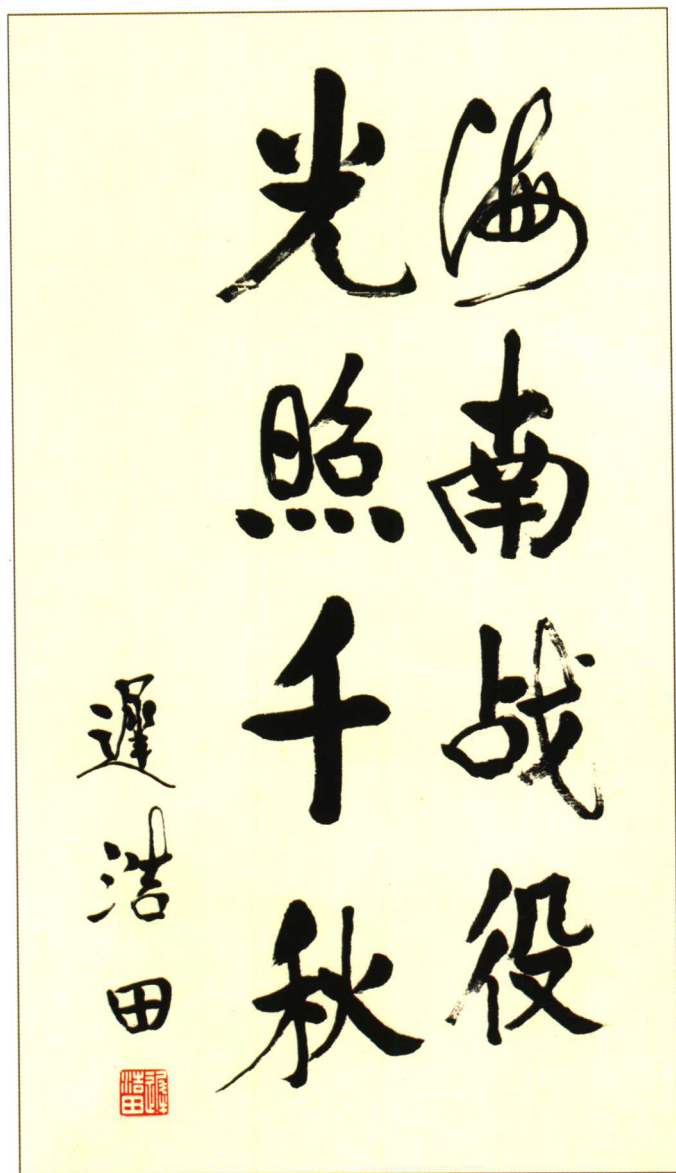 海南战役
光照千秋
遲浩田
遲浩田